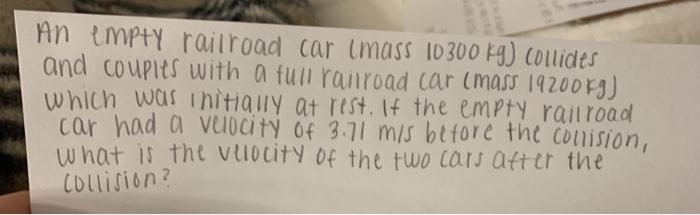 An empty railroad car (mass 10300 kg) collides
and couples with a full railroad car (mass 19200 kg)
which was initially at rest. If the empty railroad
car had a velocity of 3.71 m/s before the collision,
what is the velocity of the two cars after the
collision?